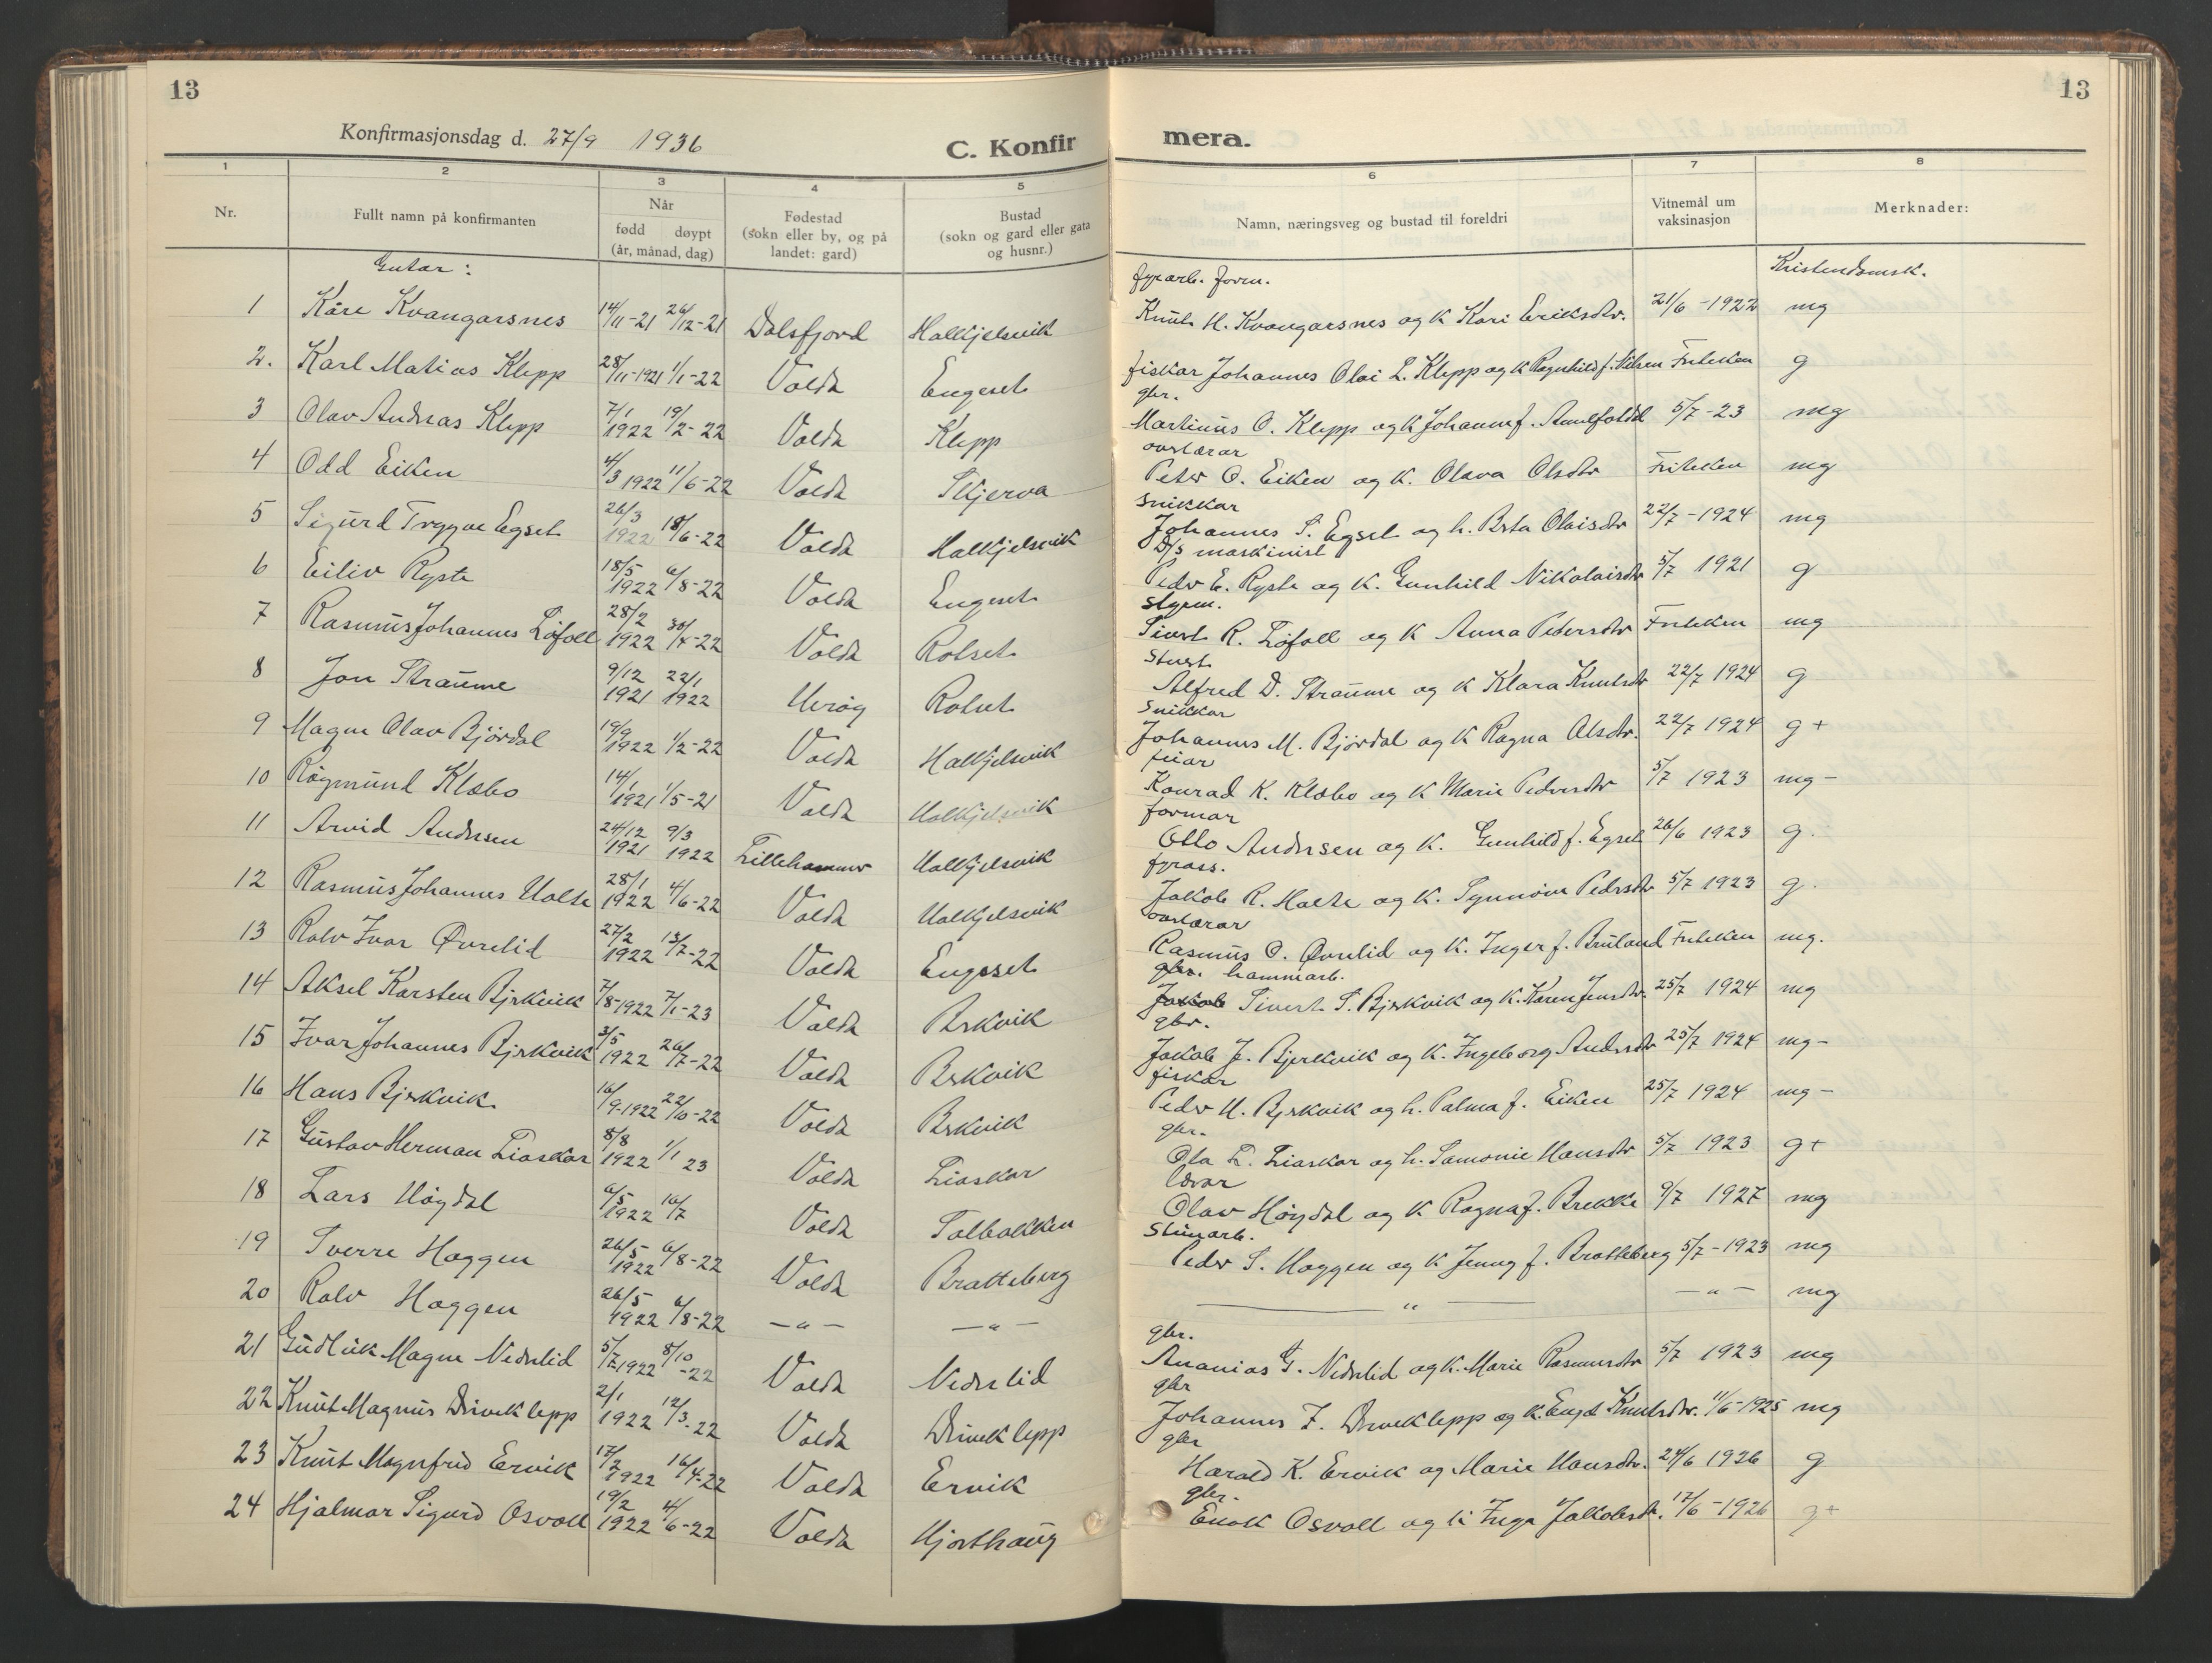 13
13
Konfirmasjonsdag d. 27/9 1936
C. Konfir mera.
1 2 3 4 5 6 7 8
Nr. Fullt namn på konfirmanten Når fødd døypt (år, månad, dag) Fødestad (sokn eller by, og på landet: gard) Bustad (sokn og gard eller gata og husnr.) Namn, næringsveg og bustad til foreldri Vitnemål um vaksinasjon Merknader:
Gutar: Kristendomsk.
fyrarb. form.
1 Kåre Kvangarsnes 14/11-21 26/12-21 Dalsfjord Halkjelsvik Knut H. Kvangarsnes og k Kari Eriksdtr. 21/6-1922 mg
2. Karl Matias Klepp 28/11-1921 1/1-22 Volda Engeset fiskar Johannes Olai L. Klepp og k Ragnhild f. Nilsen Friteken g
gbr.
3 Olav Andreas Klepp 7/1 1922 19/2-22 Volda Klepp Martinus O. Klepp og k Johanne f. 5/7-23 mg
overlærar
4 Odd Eiken 4/3 1922 11/6-22 Volda Skjerva Peter O. Eiken og k. Olava Olsdtr Friteken mg
snikkar
5 Sigurd Tryggve Egset 26/3 1922 18/6-22 Volda Halkjelsvik Johannes S. Egset og h. Berta Olaisdtr 22/7-1924 mg
D/s maskinist
6 Eiliv Ryste 18/5 1922 6/8-22 Volda Engeset Peder E. Ryste og k. Gunhild Nikolaisdtr 5/7 1921 g
styrm.
7 Rasmus Johannes Løfoll 28/2 1922 30/4-22 Volda Rotset Sivert R. Løfoll og k Anna Petersdtr Friteken mg
stuert
8 Jon Straume 9/12 1921 22/1 1922 Herøy Rotset Alfred D. Straume og k Klara Knutsdtr 22/7 1924 g
snikkar
9 Magne Olav Bjørdal 19/9 1922 1/2-22 Volda Halkjelsvik Johannes M. Bjørdal og k Ragna Olsdtr. 22/7 1924 g+
fiiar
10 Rögmund Klæbo 14/1 1921 1/5-21 Volda Halkjelsvik Konrad K. Klæbo og k Marie Pedersdtr 5/7 1923 mg-
formar
11 Arvid Andersen 24/12 1921 9/3 1922 Lillehammer Halkjelsvik Otto Andersen og k. Gunhild f. Egset 26/6 1923 g.
fyrass.
12 Rasmus Johannes Holte 28/1 1922 4/6-22 Volda Halkjelsvik Jakob R. Holte og k. Synnøve Pedersdtr 5/7 1923 g.
overlærar
13 Rolv Ivar Øvrelid 27/2 1922 13/7-22 Volda Engeset Rasmus O. Øvrelid og k. Inger f. Bruland Friteken mg.
gbr. hammarb.
14 Aksel Karsten Bjerkvik 7/8-1922 7/1-23 Volda Berkvik Jakob Sivert S. Bjerkvik og k. Karen Jensdtr. 25/7 1924 mg
gbr.
15 Ivar Johannes Bjerkvik 3/5 1922 26/7-22 Volda Berkvik Jakob J. Bjerkvik og k. Ingeborg Andersdtr 25/7 1924 mg-
fiskar
16 Hans Bjerkvik 16/9-1922 22/10-22 Volda Berkvik Peder H. Bjerkvik og h. Palma f. Eiken 25/7 1924 mg-
gbr.
17 Gustav Herman Liaskar 8/8 1922 1/1 23 Volda Liaskar Ola L. Liaskar og h. Samonie Hansdtr 5/7 1923 g+
lærar
18 Lars Høydal 6/5 1922 16/7 Volda Solbakken Olav Høydal og k Ragna f. Brekke 9/7 1927 mg
steinarb.
19 Sverre Haggen 26/5 1922 6/8-22 Volda Bratteberg Peder S. Haggen og k Jenny f. Bratteberg 5/7-1923 mg
20 Rolv Haggen 26/5 1922 6/8-22 -"- -"- -"- -"- mg
gbr.
21 Gudleik Magne Nedrelid 5/7 1922 8/10-22 Volda Nedrelid Ananias G. Nedrelid og k. Marie Rasmusdtr 5/7 1923 mg
gbr
22 Knut Magnus Driveklepp 2/1 1922 12/3-22 Volda Driveklepp Johannes I. Driveklepp og k. Knutsdtr. 11/6-1925 mg
gbr
23 Knut Magnfred Ervik 17/2 1922 16/4-22 Volda Ervik Harald K. Ervik og Marie Hansdtr. 24/6 1926 g
gbr.
24 Hjalmar Sigurd Osvoll 19/2 1922 4/6-22 Volda Hjorthaug Enok Osvoll og k Inga Jakobsdtr. 17/6-1926 g+